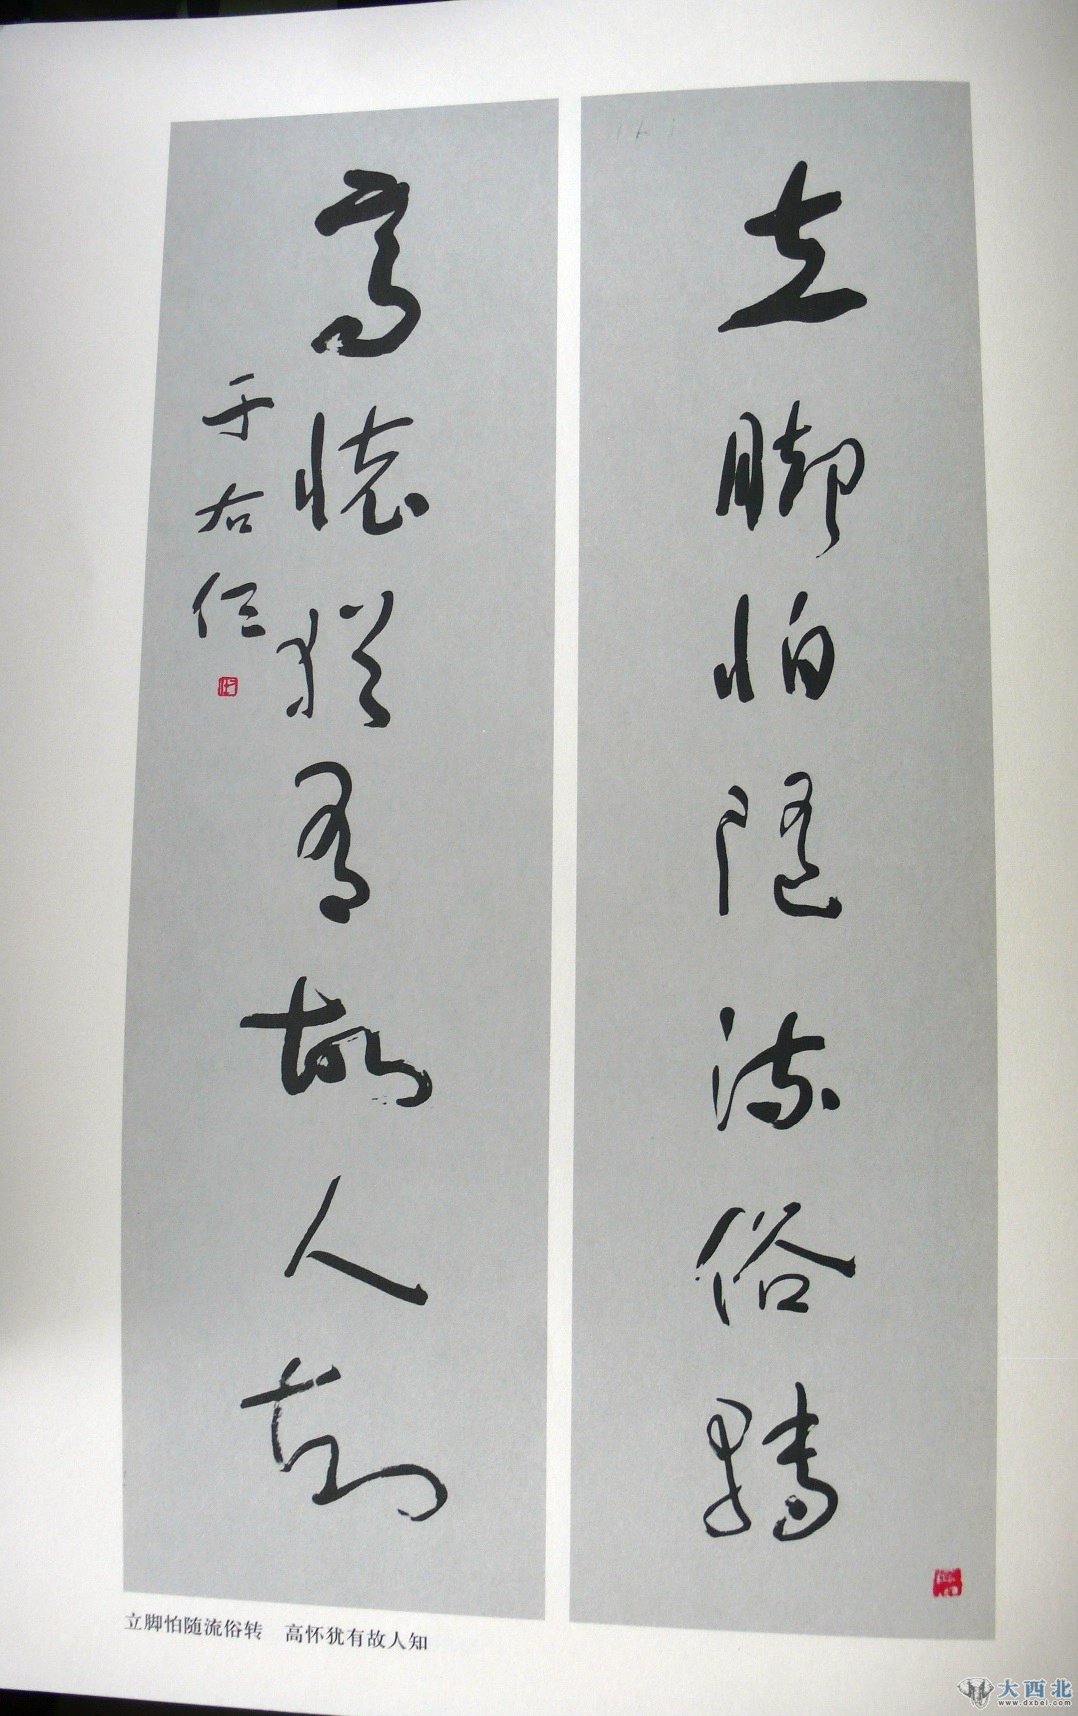 立脚怕随流俗轉
高懷猶有故人知
于右任
立脚怕随流俗转 高怀犹有故人知
大西北
www.dxbei.com